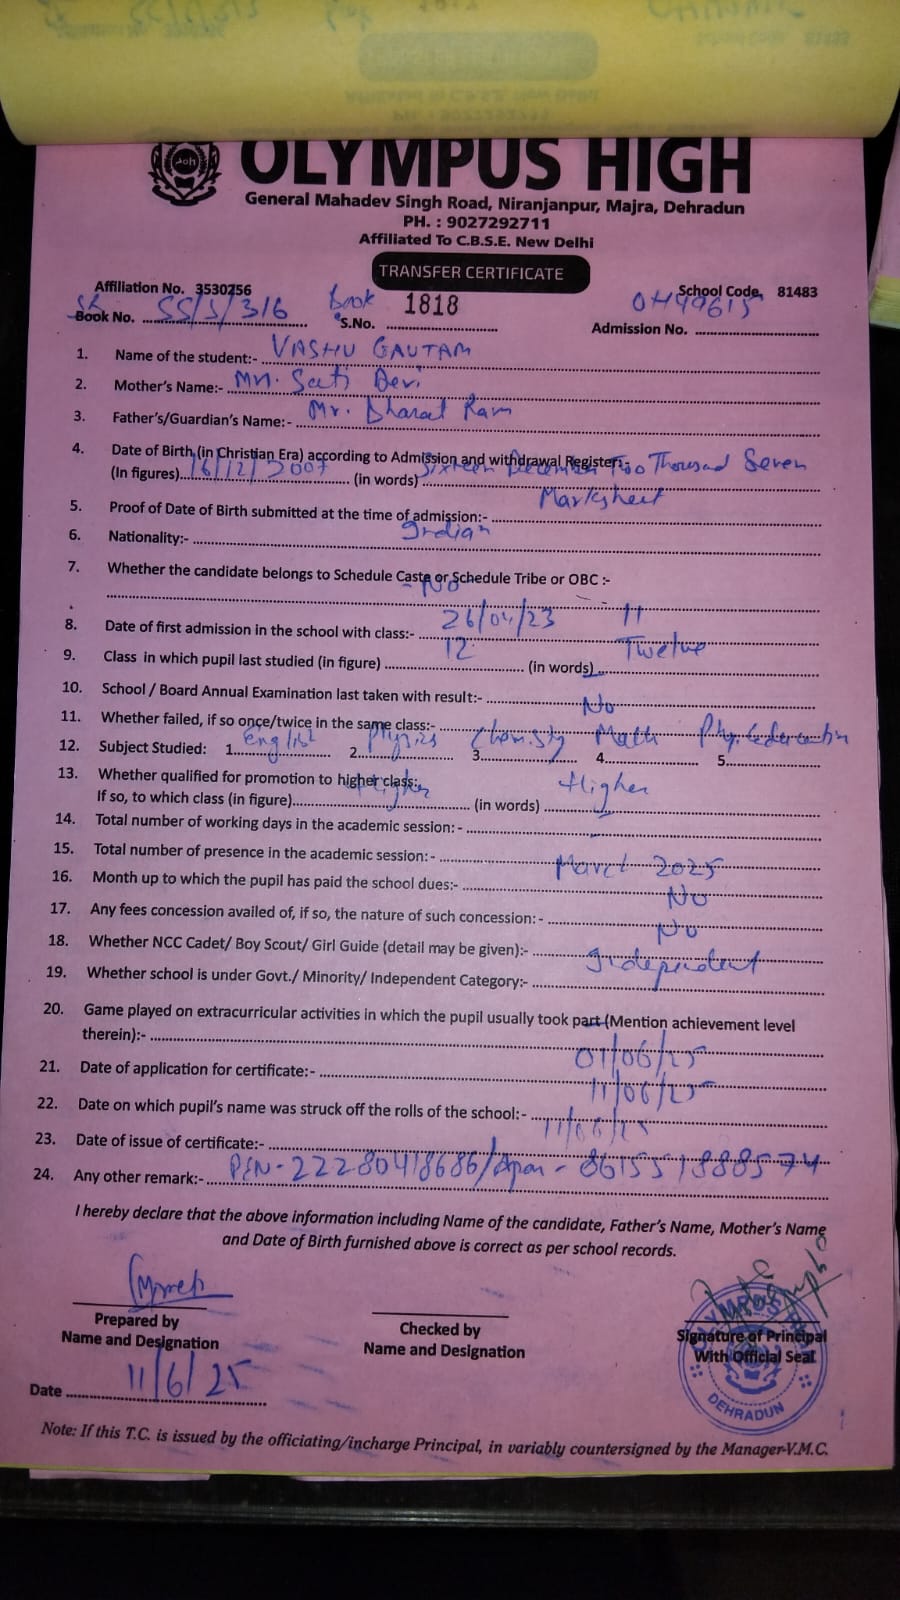 OLYMPUS HIGH
General Mahadev Singh Road, Niranjanpur, Majra, Dehradun
PH. : 9027292711
Affiliated To C.B.S.E. New Delhi
TRANSFER CERTIFICATE
Affiliation No. 3530256 School Code. 81483
Book No. SS/3/316 Book S.No. 1818 Admission No. OH49615
1. Name of the student:- VASHU GAUTAM
2. Mother's Name:- Sati Devi
3. Father's/Guardian's Name:- Mr. Bharat Ram
4. Date of Birth (in Christian Era) according to Admission and withdrawal Register:-
(In figures) 16/12/2007 (in words) Sixteen December Two Thousand Seven
5. Proof of Date of Birth submitted at the time of admission:- Marksheet
6. Nationality:- Indian
7. Whether the candidate belongs to Schedule Caste or Schedule Tribe or OBC :-
- No
8. Date of first admission in the school with class:- 26/04/23 11
9. Class in which pupil last studied (in figure) 12 (in words) Twelve
10. School / Board Annual Examination last taken with result:-
11. Whether failed, if so once/twice in the same class:- No
12. Subject Studied: 1. English 2. Physics 3. Chemisty 4. Math 5. Phy.
13. Whether qualified for promotion to higher class:
If so, to which class (in figure) Higher (in words) Higher
14. Total number of working days in the academic session: -
15. Total number of presence in the academic session: -
16. Month up to which the pupil has paid the school dues:- March 2025
17. Any fees concession availed of, if so, the nature of such concession: - No
18. Whether NCC Cadet/ Boy Scout/ Girl Guide (detail may be given):- No
19. Whether school is under Govt./ Minority/ Independent Category:- Independent
20. Game played on extracurricular activities in which the pupil usually took part (Mention achievement level
therein):-
21. Date of application for certificate:- 01/06/25
22. Date on which pupil's name was struck off the rolls of the school:- 11/06/25
23. Date of issue of certificate:- 11/06/25
24. Any other remark:- PEN-22280418686/Apaar - 861551888574
I hereby declare that the above information including Name of the candidate, Father's Name, Mother's Name
and Date of Birth furnished above is correct as per school records.
Prepared by
Name and Designation
Checked by
Name and Designation
Signature of Principal
With Official Seal
DEHRADUN
Date 11/6/25
Note: If this T.C. is issued by the officiating/incharge Principal, in variably countersigned by the Manager-V.M.C.